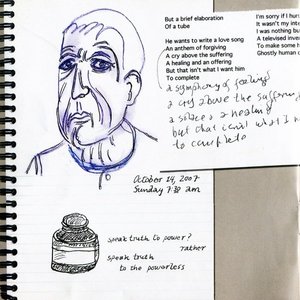 But a brief elaboration
Of a tube
He wants to write a love song
An anthem of forgiving
A cry above the suffering
A healing and an offering
But that isn't what I want him
To complete
I'm sorry if I
It wasn't my
I was nothing
A televised
To make some
Ghostly human
a symphony of feelings
a cry above the suffering
a solace & a healing
but that isn't what I
to complete
October 14, 2007
Sunday 7:38 am
speak truth to power?
rather
speak truth
to the powerless